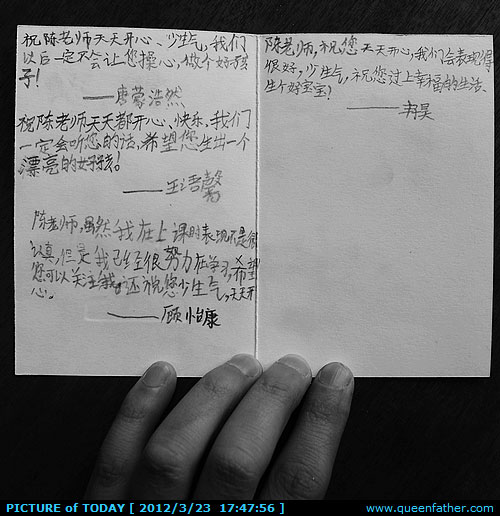 祝陈老师天天开心、少生气,我们
以后一定不会让您操心,做个好孩
子!
——唐蒙浩然
祝陈老师天天都开心、快乐,我们
一定会听您的话,希望您生出一个
漂亮的好孩!
——王语馨
陈老师,虽然我在上课时表现不是很
认真,但是我已经很努力在学习,希望
您可以关注我,还祝您少生气,天天开
心。
——顾怡康
陈老师,祝您天天开心,我们会表现得
很好,少生气,祝您过上幸福的生活、
生个好宝宝!
——冉昊
PICTURE of TODAY [ 2012/3/23 17:47:56 ]
www.queenfather.com